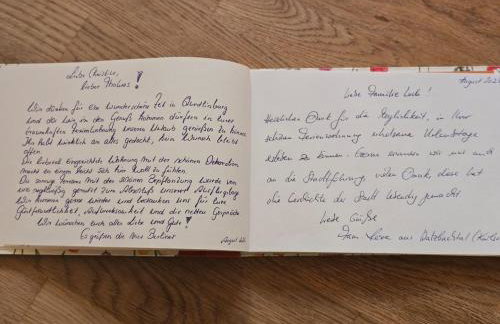 Liebe Christine,
lieber Thomas!
Wir danken für eine wunderschöne Zeit in Quedlinburg
und das wir in den Genuß kommen dürften in Eurer
traumhaften Ferienwohnung unseren Urlaub genießen zu können.
Ihr habt wirklich an alles gedacht, kein Wunsch bleibt
offen.
Die liebevoll eingerichtete Wohnung mit der schönen Dekoration,
macht es einem leicht sich hier wohl zu fühlen.
Die sonnige Terrasse mit der schönen Bepflanzung wurde von
uns regelmäßig genutzt zum Abschluß unserer Ausflugstage
Wir kommen gerne wieder und bedanken uns für Eure
Gastfreundlichkeit, Aufmerksamkeit und die netten Gespräche
Wir wünschen euch alles Liebe und Gute!
Es grüßen die zwei Berliner
August
August 202
Liebe Familie
Herzlichen Dank für die Möglichkeit, in Ihrer
schönen Ferienwohnung erholsame Urlaubstage
erleben zu können. Gerne erinnern wir uns auch
an die Stadtführung vielen Dank, diese hat
die Geschichte der Stadt lebendig gemacht.
Liebe Grüße
Fam. aus